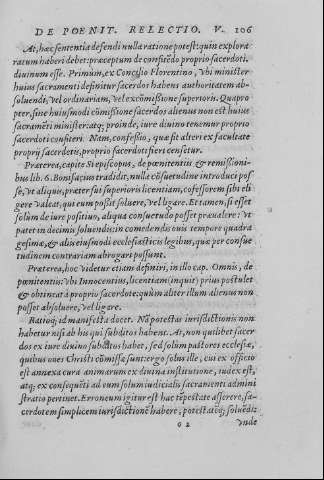 DE POENIT. RELECTIO. V. 106
At, hæc sententia defendi nulla ratione potest: quin explora
ratum haberi debet: præceptum de confitẽdo proprio sacerdoti,
diuinum esse. Primum, ex Concilio Florentino, vbi minister
huius sacramenti definitur sacerdos habens authoritatem ab-
soluendi, vel ordinariam, vel ex cõmissione superioris. Quapro
pter, sine huiusmodi cõmissione sacerdos alienus non est huius
sacramẽti minister: atq; proinde, iure diuino tenemur proprio
sacerdoti confiteri. Nam, confessio, quæ fit alteri ex facultate
proprij sacerdotis, proprio sacerdoti fieri censetur.
Præterea, capite si episcopus, de pœnitentiis & remissioni-
bus lib. 6. Bonifacius tradidit, nulla cõsuetudine introduci pos
se, vt aliquis, præter sui superioris licentiam, cõfessorem sibi eli
gere valeat, qui eum possit soluere, vel ligare. Et tamen, si esset
solùm de iure positiuo, aliqua consuetudo posset præualere: vt
patet in decimis soluendis: in comedendis ouis tempore quadra
gesimæ, & aliis eiusmodi ecclesiasticis legibus, quæ per consue
tudinem contrariam abrogari possunt.
Præterea, hoc videtur etiam definiri, in illo cap. Omnis, de
pœnitentiis: vbi Innocentius, licentiam (inquit) prius postulet
& obtineat à proprio sacerdote: quùm aliter illum alienus non
posset absoluere, vel ligare.
Ratioq; id manifesta docet. Nã potestas iurisdictionis non
habetur nisi ab his qui subditos habent. At, non quilibet sacer
dos ex iure diuino subditos habet, sed solùm pastores ecclesiæ,
quibus oues Christi cõmissæ sunt: ergo solus ille, cui ex officio
est annexa cura animarum ex diuina institutione, iudex est,
atq; ex consequẽti ad eum solum iudicialis sacramenti admini
stratio pertinet. Erroneum igitur est hac tẽpestate asserere, sa-
cerdotem simplicem iurisdictionẽ habere, potestatẽq; soluẽdi:
o 2 vnde